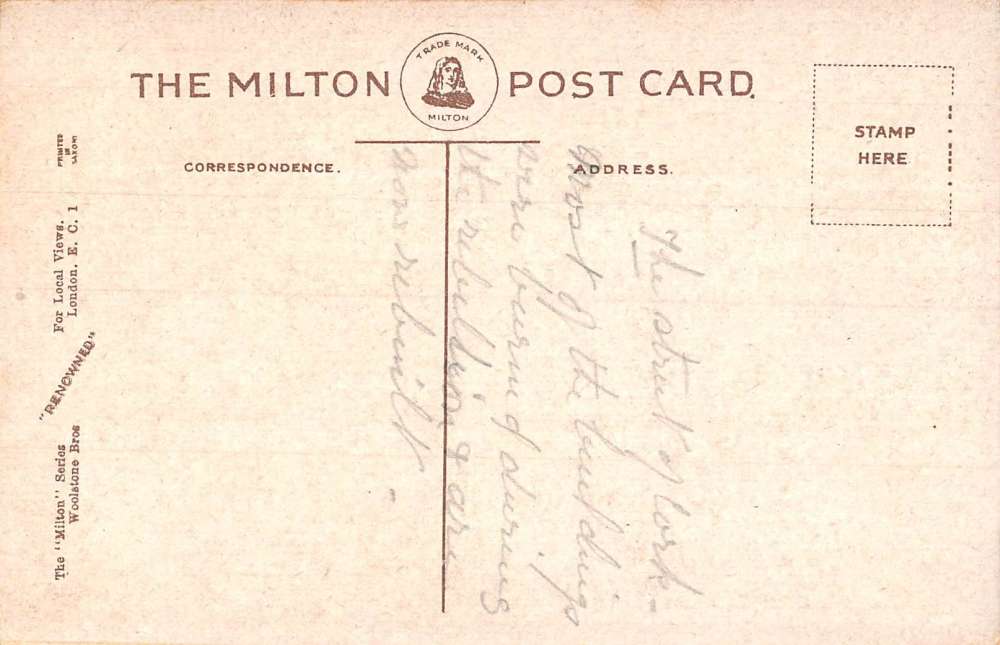 THE MILTON POST CARD.
TRADE MARK
MILTON
CORRESPONDENCE.
ADDRESS.
STAMP
HERE
PRINTED
IN
SAXONY
The "Milton" Series "RENOWNED" For Local Views.
Woolstone Bros London. E. C. 1
The street of Cork -
Most of the buildings
were burned during
the rebellion & are
now rebuilt -